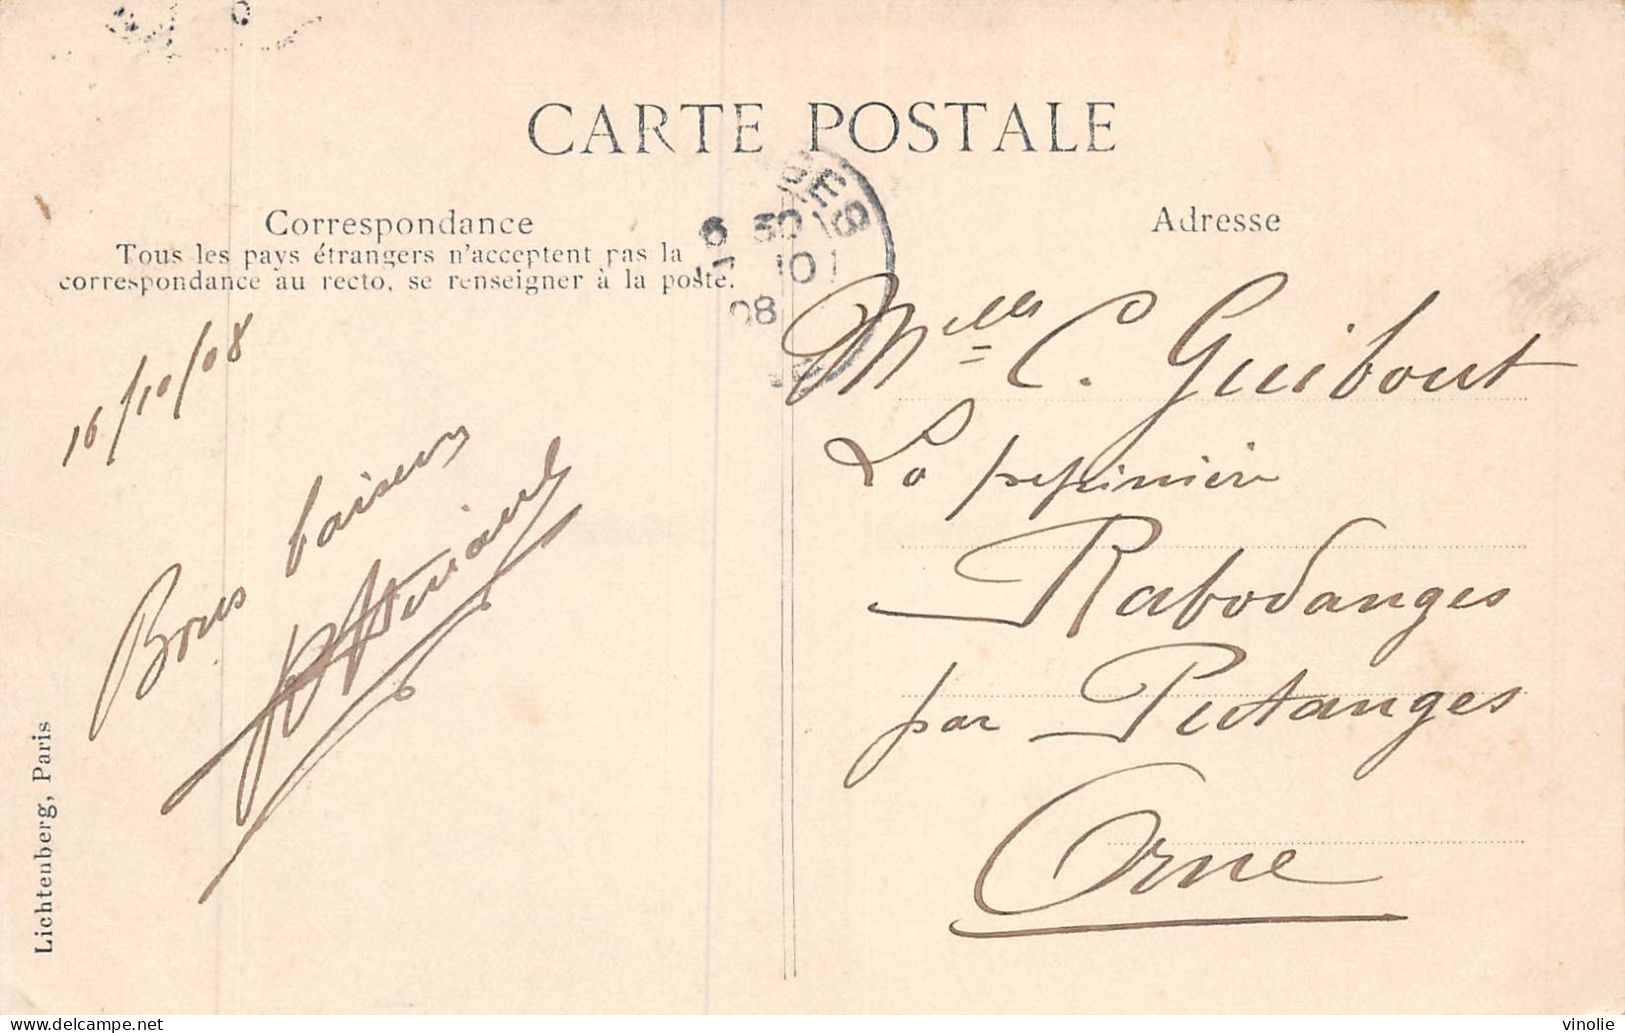 CARTE POSTALE
Correspondance
Tous les pays étrangers n'acceptent pas la
correspondance au recto, se renseigner à la poste.
Adresse
16/10/08
Bons baisers
Melle C. Guibout
La pepinière
Rabodanges
par Putanges
Orne
GES
30
10
08
Lichtenberg, Paris
vinolie